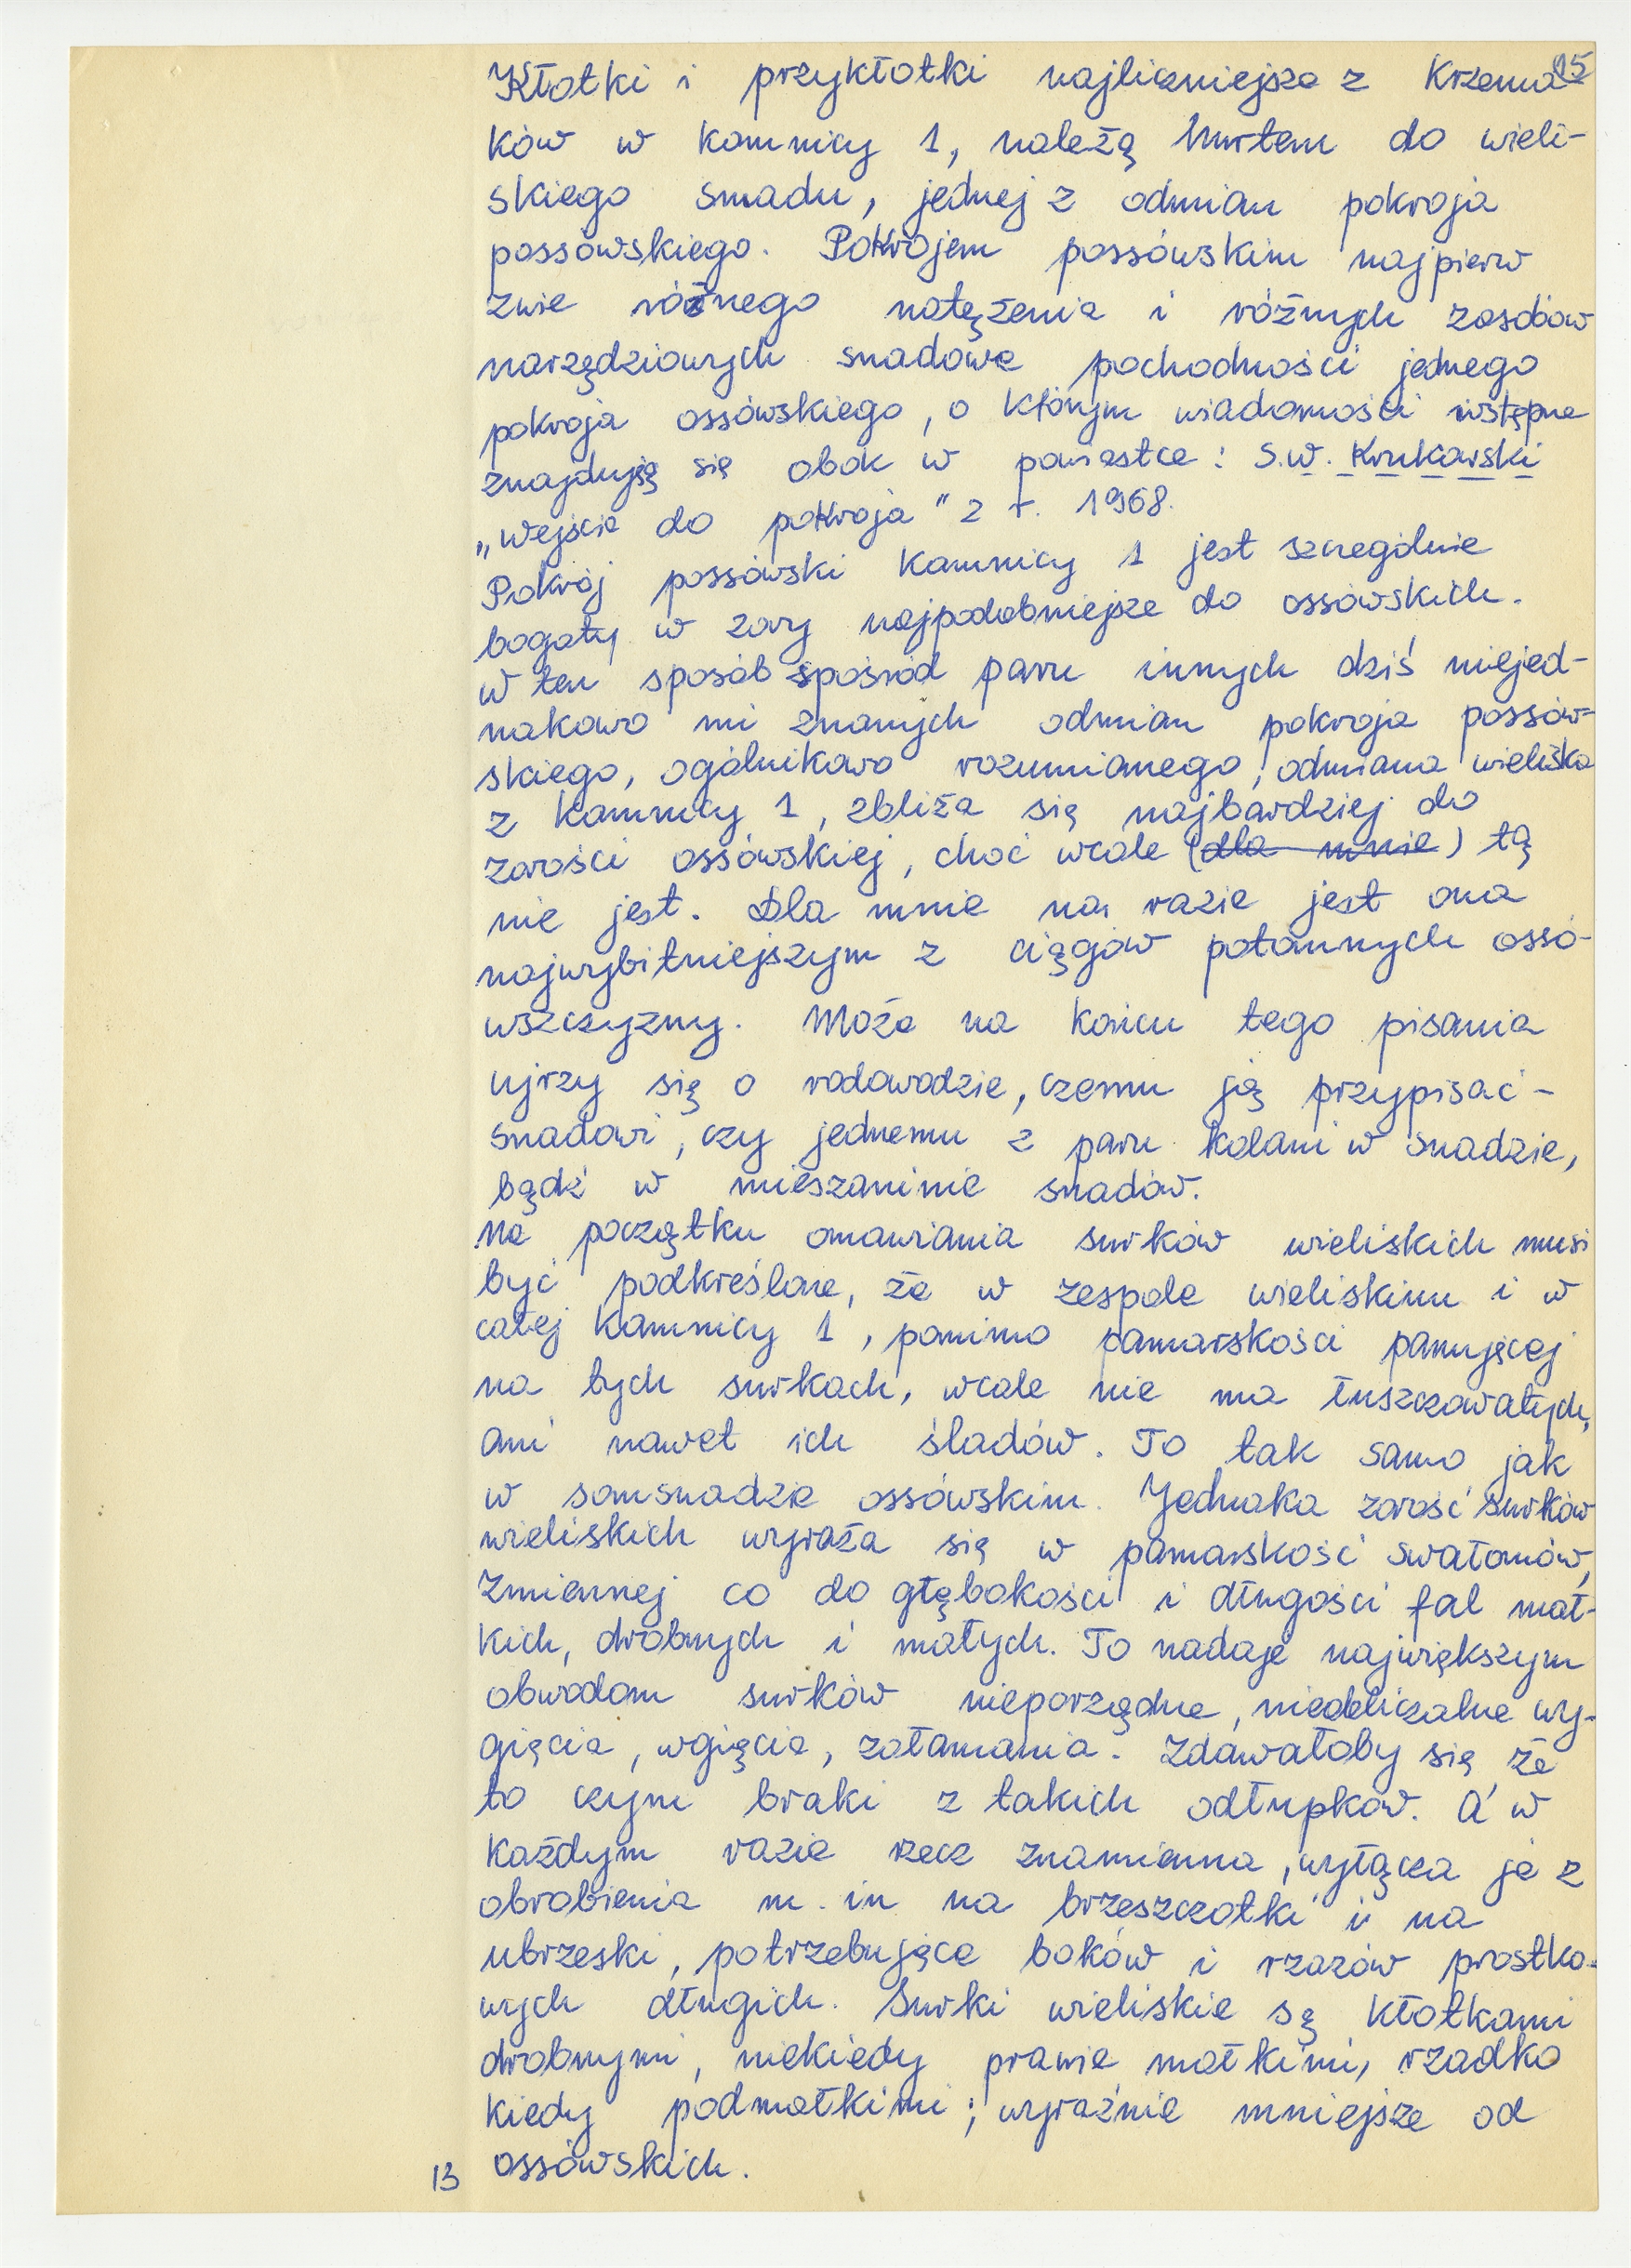 15
Kłotki i przykłotki najliczniejsze z Krzemia-
ków w Kamnicy 1, należą hurtem do wieli-
skiego snadu, jednej z odmian pokroja
possówskiego. Pokrojem possówskim najpierw
zwie różnego natężenia i różnych zasobów
narzędziowych snadowe pochodności jednego
pokroja ossówskiego, o którym wiadomości wstępne
znajdują się obok w powiastce: S.W. Krukowski
„Wejście do pokroja" z r. 1968.
Pokrój possówski Kamnicy 1 jest szczególnie
bogaty w zary najpodobniejsze do ossówskich.
W ten sposób spośród paru innych dziś niejed-
nakowo mi znanych odmian pokroja possów-
skiego, ogólnikowo rozumianego, odmiana wieliska
z Kamnicy 1, zbliża się najbardziej do
zarości ossówskiej, choć wcale (dla mnie) tą
nie jest. Dla mnie na razie jest ona
najwybitniejszym z ciągów potomnych ossó-
wszczyzny. Może na końcu tego pisania
ujrzy się o rodowodzie, czemu ją przypisać -
snadowi, czy jednemu z paru kolani w snadzie,
bądź w mieszaninie snadów.
Na początku omawiania surków wieliskich musi
być podkreślone, że w zespole wieliskim i w
całej Kamnicy 1, pomimo pamarskości panującej
na tych surkach, wcale nie ma łuszczowatych,
ani nawet ich śladów. To tak samo jak
w somsnadzie ossówskim. Jednaka zarość surków
wieliskich wyraża się w pamarskość swatomów,
zmiennej co do głębokości i długości fal mał-
kich, drobnych i małych. To nadaje największym
obwodom surków nieporządne, nieobliczalne wy-
gięcia, wgięcia, załamania. Zdawałoby się że
to czyni braki z takich odłupków. A w
każdym razie rzecz znamienna, wyłącza je z
obrobienia m. in na brzeszczotki i na
ubrzeski, potrzebujące boków i rzazów prostko-
wych długich. Surki wieliskie są kłotkami
drobnymi, niekiedy prawie małkimi, rzadko
kiedy podmałkimi; wyraźnie mniejsze od
ossówskich.
13